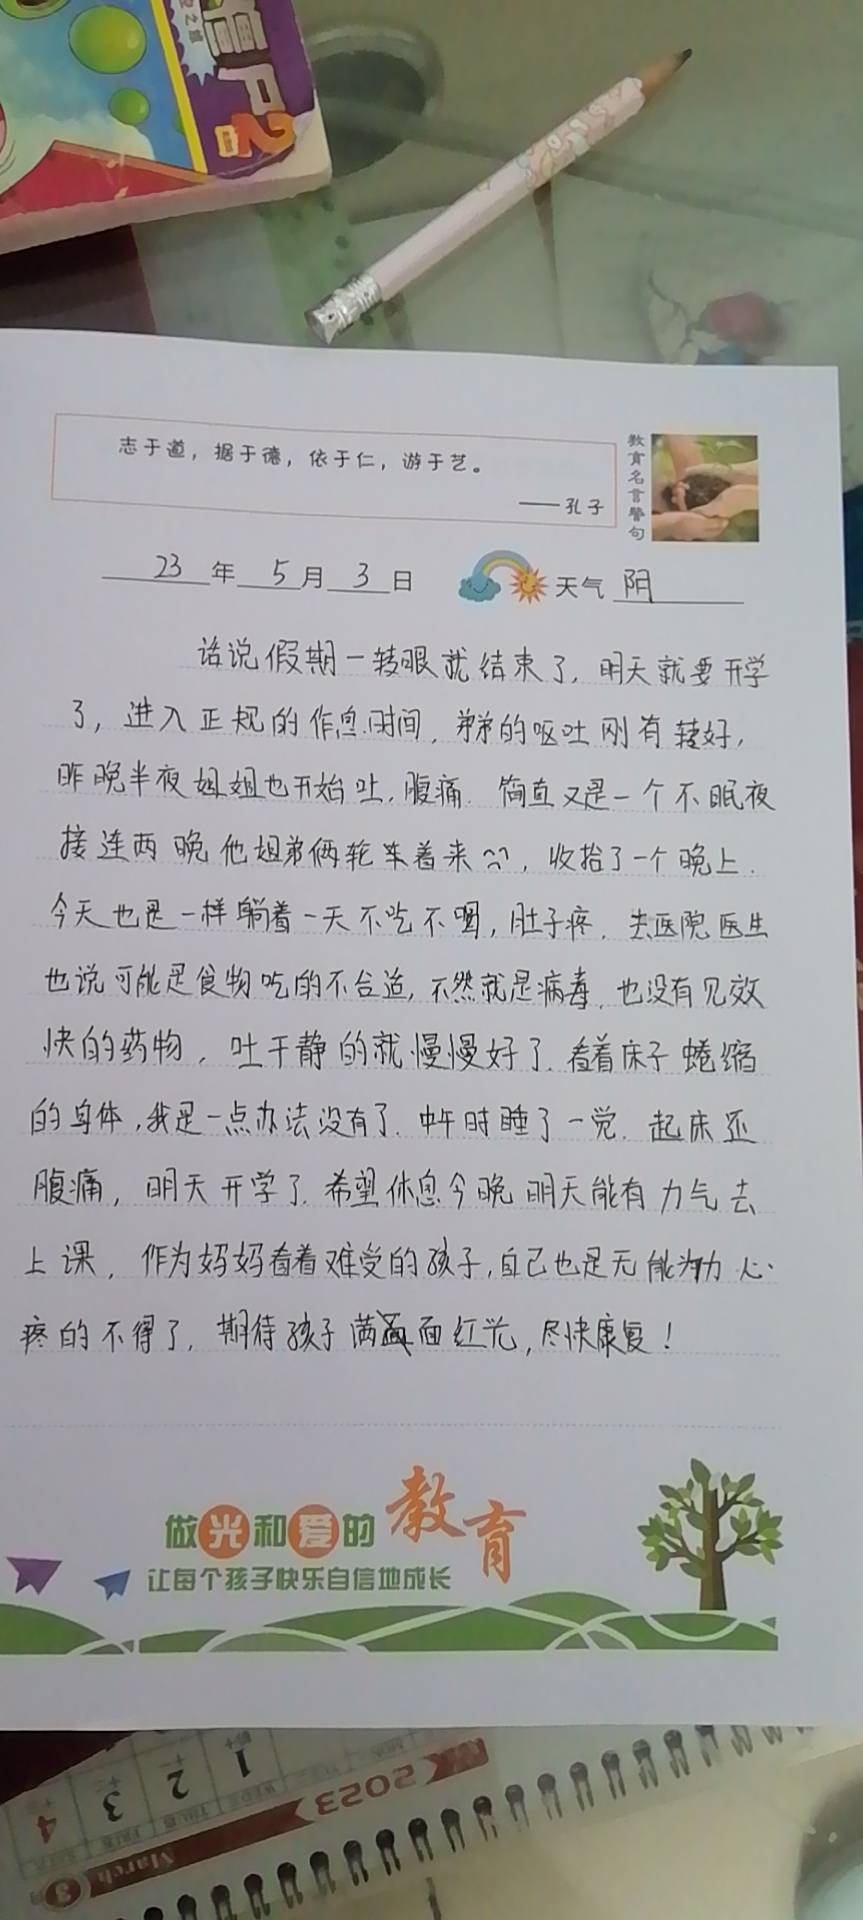 志于道，据于德，依于仁，游于艺。
——孔子
教育名言警句
23年5月3日 天气 阴
话说假期一转眼就结束了，明天就要开学
了，进入正规的作息时间，弟弟的呕吐刚有转好，
昨晚半夜姐姐也开始吐，腹痛. 简直又是一个不眠夜
接连两晚他姐弟俩轮车着来，收拾了一个晚上.
今天也是一样躺着一天不吃不喝，肚子疼. 去医院医生
也说可能是食物吃的不合适，不然就是病毒，也没有见效
快的药物，吐干静的就慢慢好了. 看着床子蜷缩
的身体，我是一点办法没有了. 中午时睡了一觉. 起床还
腹痛，明天开学了. 希望休息今晚明天能有力气去
上课，作为妈妈看着难受的孩子，自己也是无能为力 心
疼的不得了. 期待孩子满面红光，尽快康复！
做光和爱的教育
让每个孩子快乐自信地成长
1
2
3
4
2023
March
3